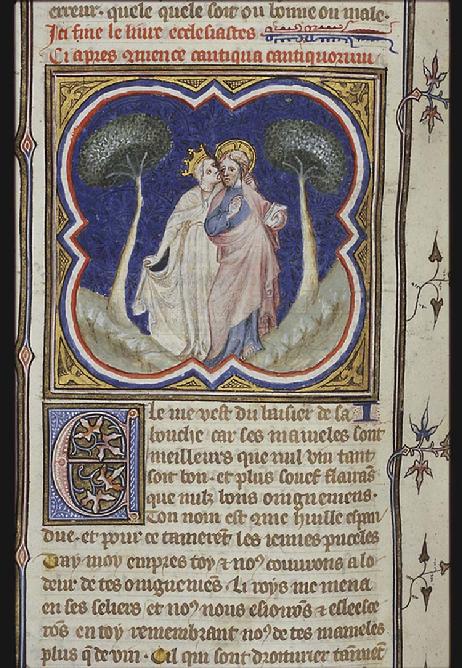 erreur. quele quele soit ou bonne ou male.
Ici fine le liure ecclesiastes
Ci apres 9mence cantiqua cantiquorum
Ce me vest du baisier de sa
bouche car ses mameles sont
meilleurs que nul vin tant
soit bon. et plus souef flairās
que nulz bons oingnemens.
Ton nom est 9me huille espan
due. et pour ce tameret les iennes pucelles
Tray moy empres toy & noꝰ courrons a lo
deur de tes oingnemēs. Li roys me mena
en ses celiers et noꝰ nous esioirōs & esleesce
rōs en toy remembrant noꝰ de tes mameles
plus q̄ de vin. Cil qui sont droiturier taimēt